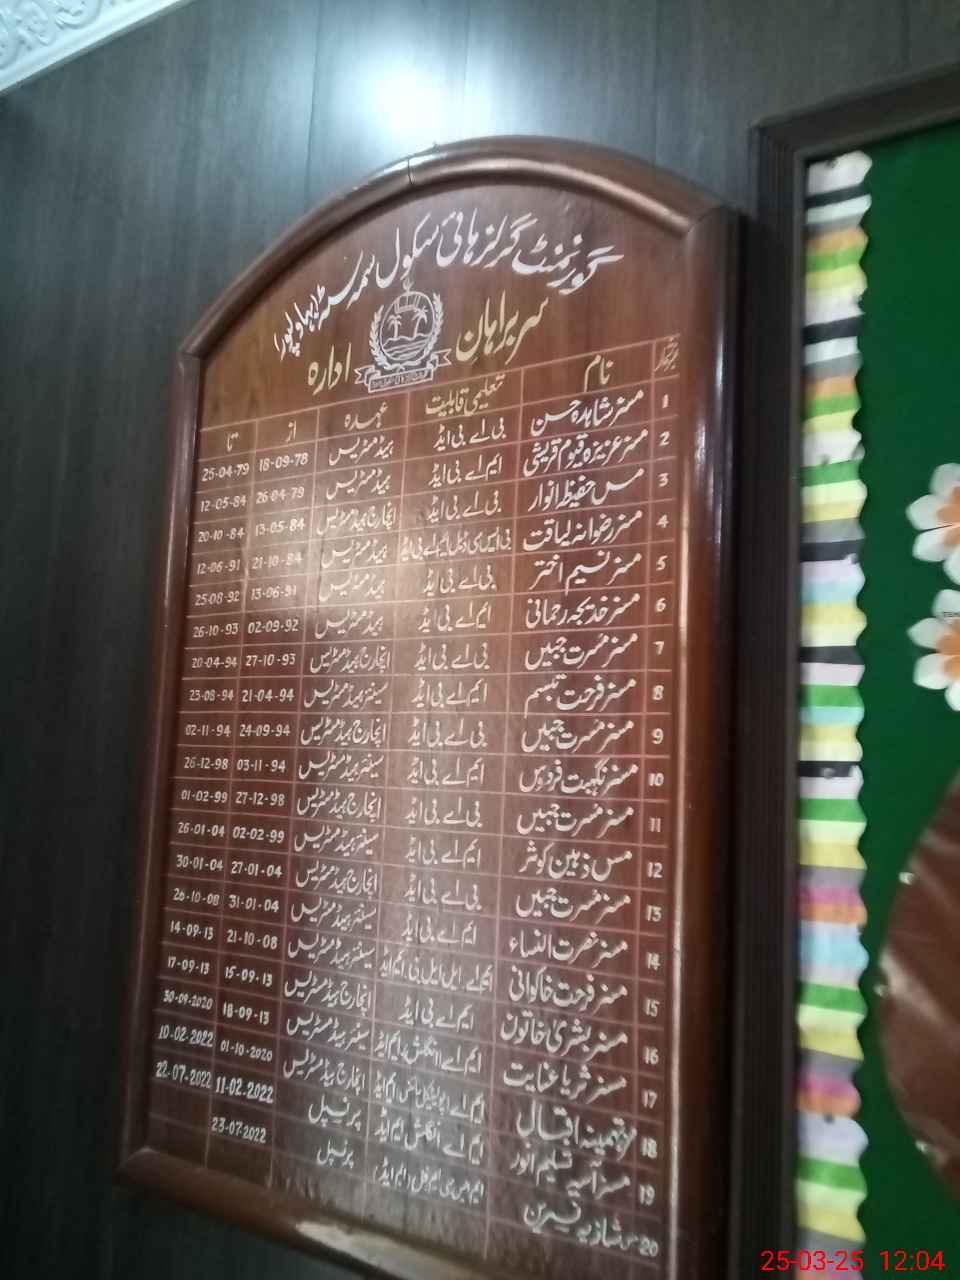 گورنمنٹ گرلز ہائی سکول سمہ سٹہ بہاولپور
سربراہان ادارہ
نمبر شمار نام تعلیمی قابلیت عہدہ از تا
1 مسز شاہدہ حسن بی اے بی ایڈ ہیڈ مسٹریس 18-09-78 25-04-79
2 مسز عزیزہ قیوم قریشی ایم اے بی ایڈ ہیڈ مسٹریس 26-04-79 12-05-84
3 مس حفیظ انوار بی اے بی ایڈ انچارج ہیڈ مسٹریس 13-05-84 20-10-84
4 مسز رضوانہ لیاقت بی ایس سی ڈبل ایم اے بی ایڈ ہیڈ مسٹریس 21-10-84 12-06-91
5 مسز نسیم اختر بی اے بی ایڈ ہیڈ مسٹریس 13-06-91 25-08-92
6 مسز خدیجہ رحمانی ایم اے بی ایڈ ہیڈ مسٹریس 02-09-92 26-10-93
7 مسز مسرت جبیں بی اے بی ایڈ انچارج ہیڈ مسٹریس 27-10-93 20-04-94
8 مسز فرحت تبسم ایم اے بی ایڈ سینئر ہیڈ مسٹریس 21-04-94 23-08-94
9 مسز مسرت جبیں بی اے بی ایڈ انچارج ہیڈ مسٹریس 24-09-94 02-11-94
10 مسز نگہت فردوس ایم اے بی ایڈ سینئر ہیڈ مسٹریس 03-11-94 26-12-98
11 مسز مسرت جبیں بی اے بی ایڈ انچارج ہیڈ مسٹریس 27-12-98 01-02-99
12 مس ذہین کوثر ایم اے بی ایڈ سینئر ہیڈ مسٹریس 02-02-99 26-01-04
13 مسز مسرت جبیں بی اے بی ایڈ انچارج ہیڈ مسٹریس 27-01-04 30-01-04
14 مسز نصرت النساء ایم اے بی ایڈ سینئر ہیڈ مسٹریس 31-01-04 20-10-08
15 مسز فرحت خاکوانی ایم اے ایل ایل بی ایم ایڈ سینئر ہیڈ مسٹریس 21-10-08 14-09-13
16 مسز بشریٰ خاتون ایم اے بی ایڈ انچارج ہیڈ مسٹریس 15-09-13 17-09-13
17 مسز ثریا عنایت ایم اے انگلش ایم ایڈ سینئر ہیڈ مسٹریس 18-09-13 30-09-2020
18 تہمینہ اقبال ایم اے پولیٹیکل سائنس ایم ایڈ انچارج ہیڈ مسٹریس 01-10-2020 10-02-2022
19 مسز آسیہ تسلیم انور ایم اے انگلش ایم ایڈ پرنسپل 11-02-2022 22-07-2022
20 مس شازیہ نسرین ایم ایس سی ایم ایڈ پرنسپل 23-07-2022
25-03-25 12:04